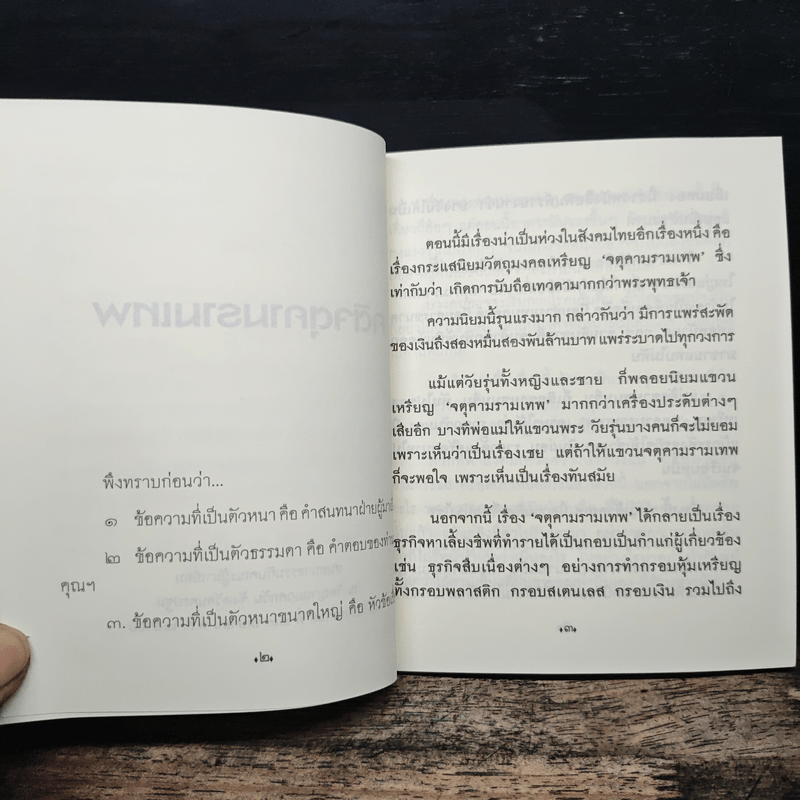 พึงทราบก่อนว่า...
๑ ข้อความที่เป็นตัวหนา คือ คำสนทนาฝ่ายผู้มา
๒ ข้อความที่เป็นตัวธรรมดา คือ คำตอบของท่าน
คุณฯ
๓. ข้อความที่เป็นตัวหนาขนาดใหญ่ คือ หัวข้อ
♦๒♦
ตอนนี้มีเรื่องน่าเป็นห่วงในสังคมไทยอีกเรื่องหนึ่ง คือ
เรื่องกระแสนิยมวัตถุมงคลเหรียญ ‘จตุคามรามเทพ’ ซึ่ง
เท่ากับว่า เกิดการนับถือเทวดามากกว่าพระพุทธเจ้า
ความนิยมนี้รุนแรงมาก กล่าวกันว่า มีการแพร่สะพัด
ของเงินถึงสองหมื่นสองพันล้านบาท แพร่ระบาดไปทุกวงการ
แม้แต่วัยรุ่นทั้งหญิงและชาย ก็พลอยนิยมแขวน
เหรียญ ‘จตุคามรามเทพ’ มากกว่าเครื่องประดับต่างๆ
เสียอีก บางทีพ่อแม่ให้แขวนพระ วัยรุ่นบางคนก็จะไม่ยอม
เพราะเห็นว่าเป็นเรื่องเชย แต่ถ้าให้แขวนจตุคามรามเทพ
ก็จะพอใจ เพราะเห็นเป็นเรื่องทันสมัย
นอกจากนี้ เรื่อง ‘จตุคามรามเทพ’ ได้กลายเป็นเรื่อง
ธุรกิจหาเลี้ยงชีพที่ทำรายได้เป็นกอบเป็นกำแก่ผู้เกี่ยวข้อง
เช่น ธุรกิจสืบเนื่องต่างๆ อย่างการทำกรอบหุ้มเหรียญ
ทั้งกรอบพลาสติก กรอบสเตนเลส กรอบเงิน รวมไปถึง
♦๓♦